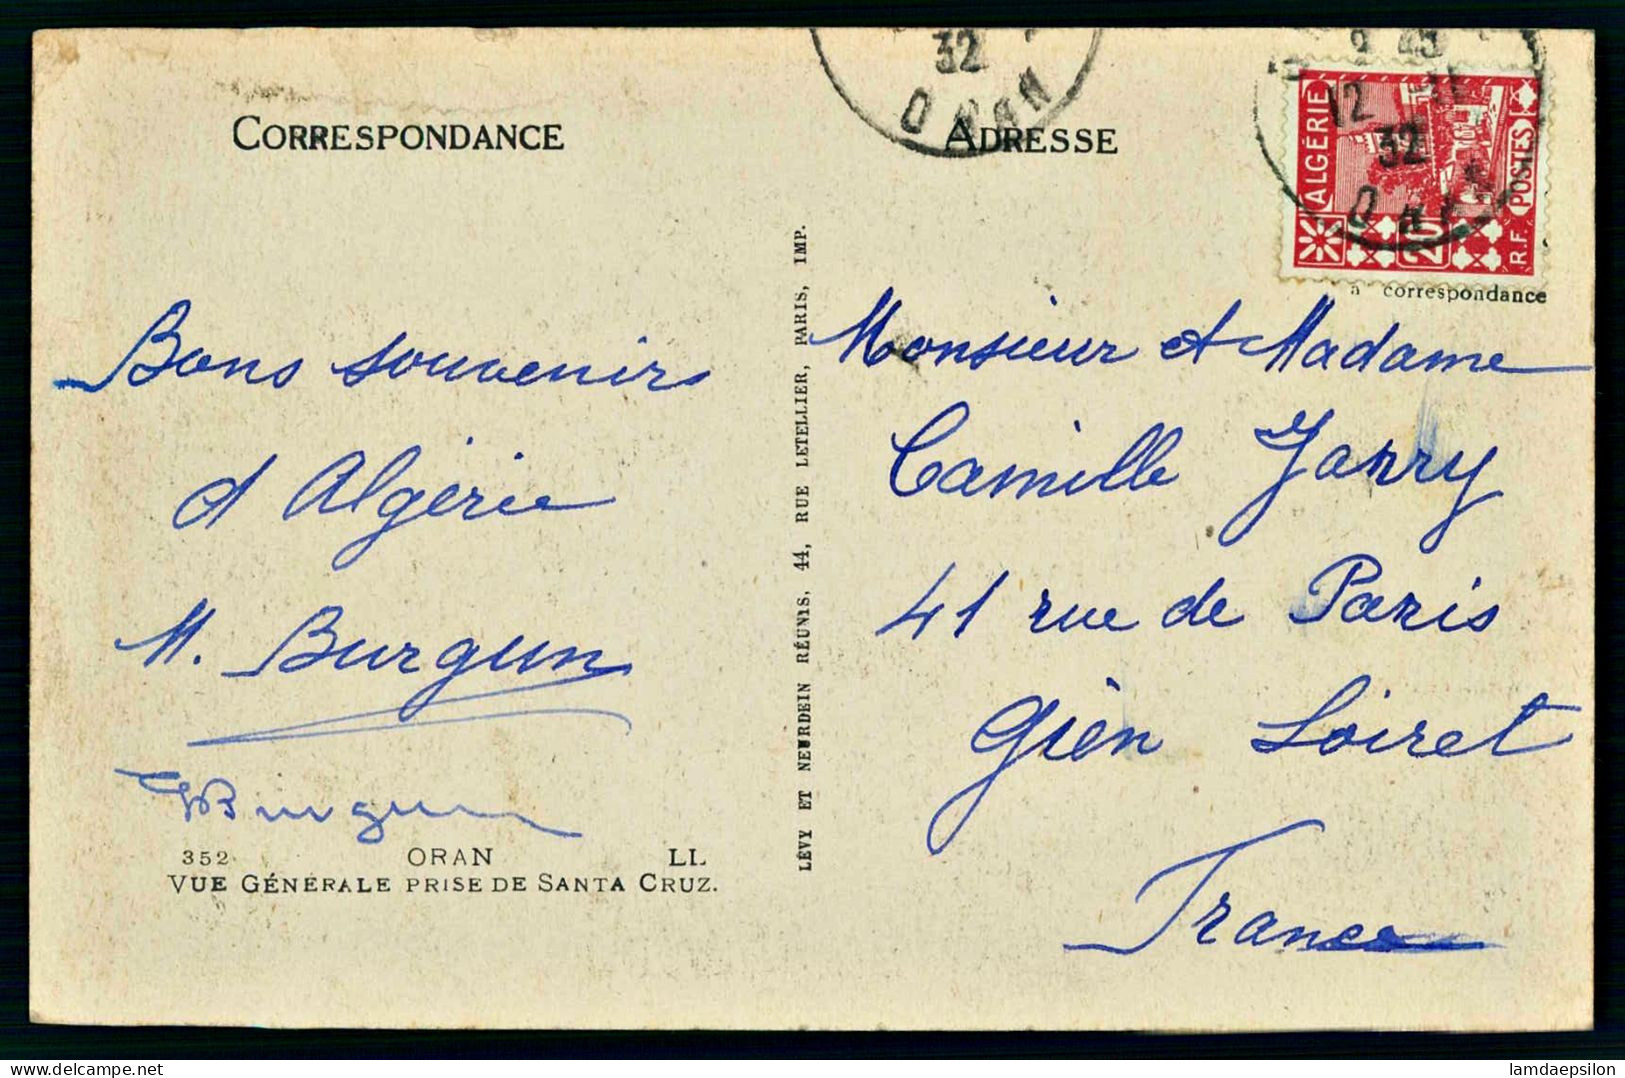 CORRESPONDANCE
ADRESSE
32
ORAN
12 11
32
ORAN
ALGÉRIE
POSTES
20
R.F.
à correspondance
Bons souvenirs
d'Algérie
M. Burgun
Burgun
352 ORAN LL
VUE GÉNÉRALE PRISE DE SANTA CRUZ.
LÉVY ET NEURDEIN RÉUNIS, 44, RUE LETELLIER, PARIS, IMP.
Monsieur et Madame
Camille Jarry
41 rue de Paris
Gien Loiret
France
lamdaepsilon